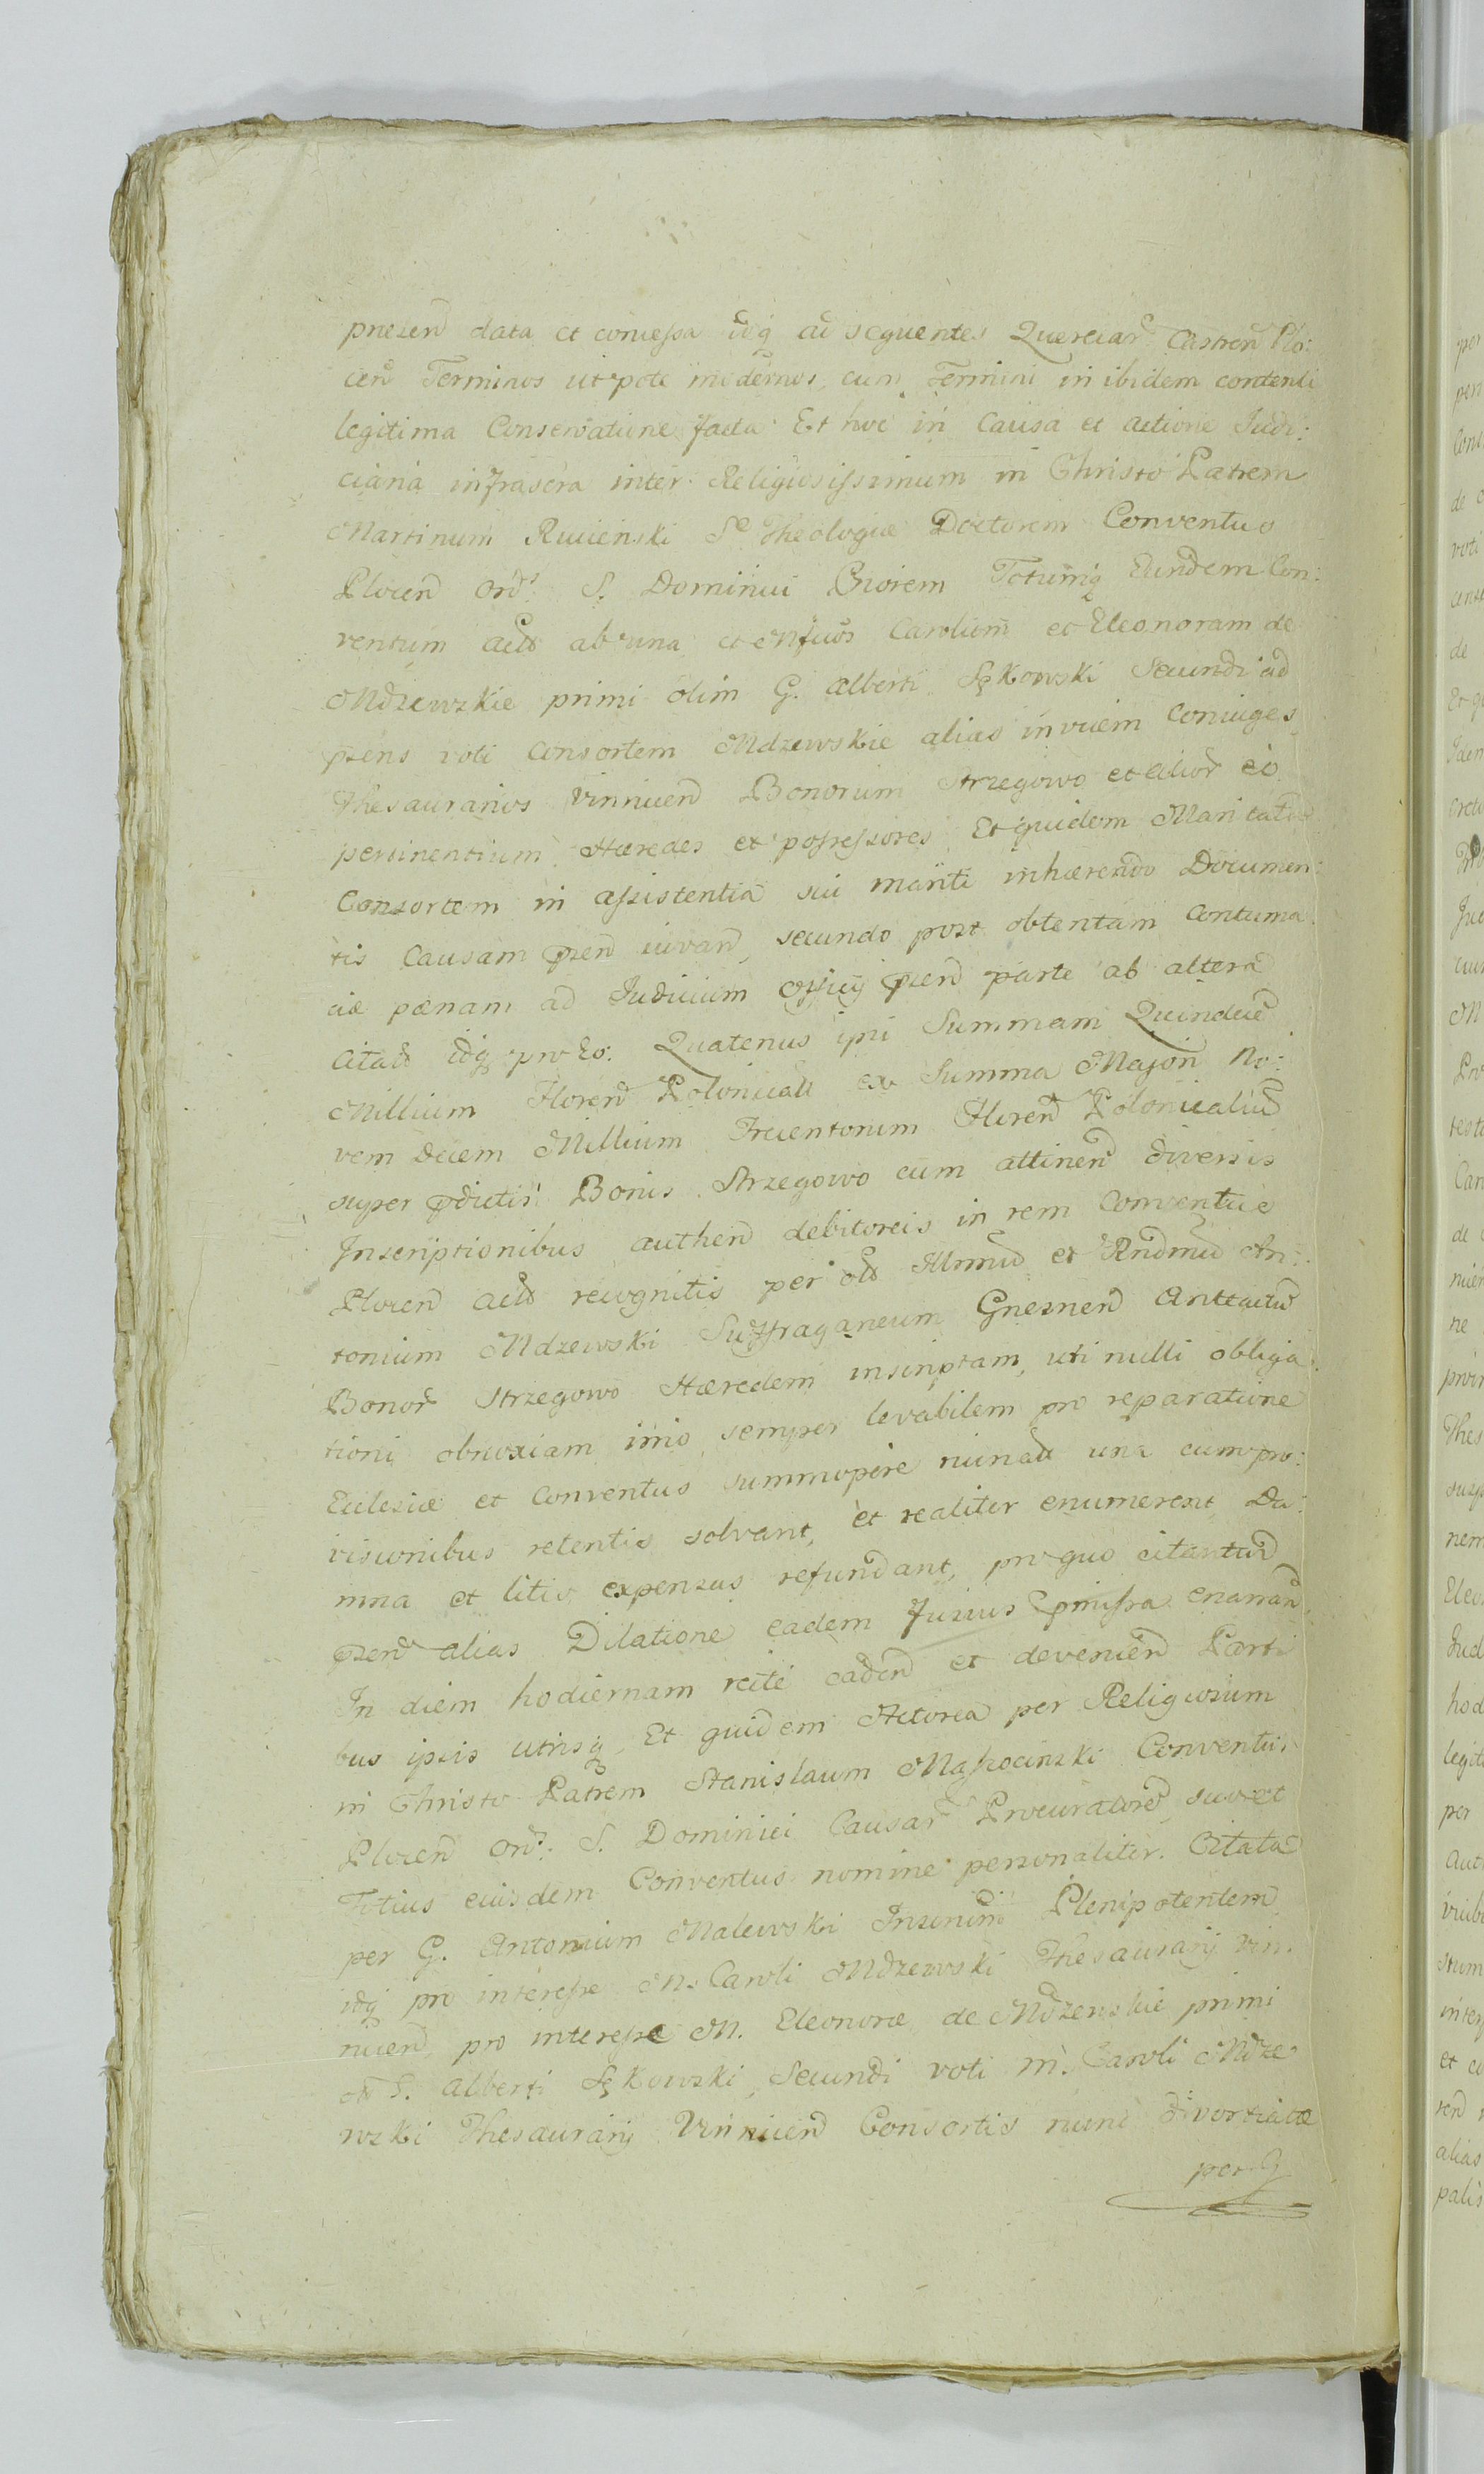 prezen data et concessa idq ad sequentes Querelar Castren Plo:
cen Terminos utpote modernos, cum Termini in ibidem contenti
legitima Conservatione facta. Et hoc in Causa et actione Judi:
ciaria infrascra inter Religiosissimum in Christo Patrem
Martinum Rucienski Se Theologiæ Doctorem Conventus
Plocen Ord: S. Dominici Priorem Totumq Eundem Con:
ventum acto ab una et Mficos Carolum et Eleonoram de
Mdzewskie primi olim G. Alberti Sękowski Secundi ad
pzens voti Consortem Mdzewskie alias invicem Coniuges
Thesaurarios Vinnicen Bonorum Strzegowo et alior eo
pertinentium Hæredes et possessores Et quidem Maritatam
Consortem in assistentia sui mariti inhærendo Documen:
tis Causam pzen iuvan, secundo post obtentam Contuma:
ciæ pænam ad Judicium Officij pzen parte ab altera
Citato idq pro Eo: Quatenus ipsi Summam Quindecem
Millium Floren Polonicali ex Summa Majori No:
vem Decem Millium Trecentorum Floren Polonicaliu
super pdictis Bonis Strzegowo cum attinen diversis
Inscriptionibus authen debitoreis in rem Conventus
Plocen acto recognitis per olim Illmu et Rndmu An:
tonium Mdzewski Suffraganeum Gnesnen Anteactu
Bonor Strzegowo Hæredem inscriptam, uti nulli obliga:
tioni obnoxiam imo semper levabilem pro reparatione
Ecclesiæ et Conventus summopere ruinati una cum pro:
visionibus retentis solvant, et realiter enumerent, Da:
mna et litis expensas refundant, pro quo citantur
pzen alias Dilatione eadem fusius pmissa enarran
In diem hodiernam recte caden et devenien Parti
bus ipsis utrisq Et quidem Actorea per Religiosum
in Christo Patrem Stanislaum Conventus
Plocen Ord: S. Dominici Causar Procuratore suo et
Totius eiusdem Conventus nomine personaliter. Citata
per G. Antonium Malewski Plenipotentem
idq pro interesse M. Caroli Mdzewski Thesaurarij Vin:
nicen, pro interesse M. Eleonoræ de Mdzewskie primi
ol G. Alberti Sękowski, Secundi voti M. Caroli Mdze
wski Thesaurarij Vinnicen Consortis nunc divortiatæ
per G